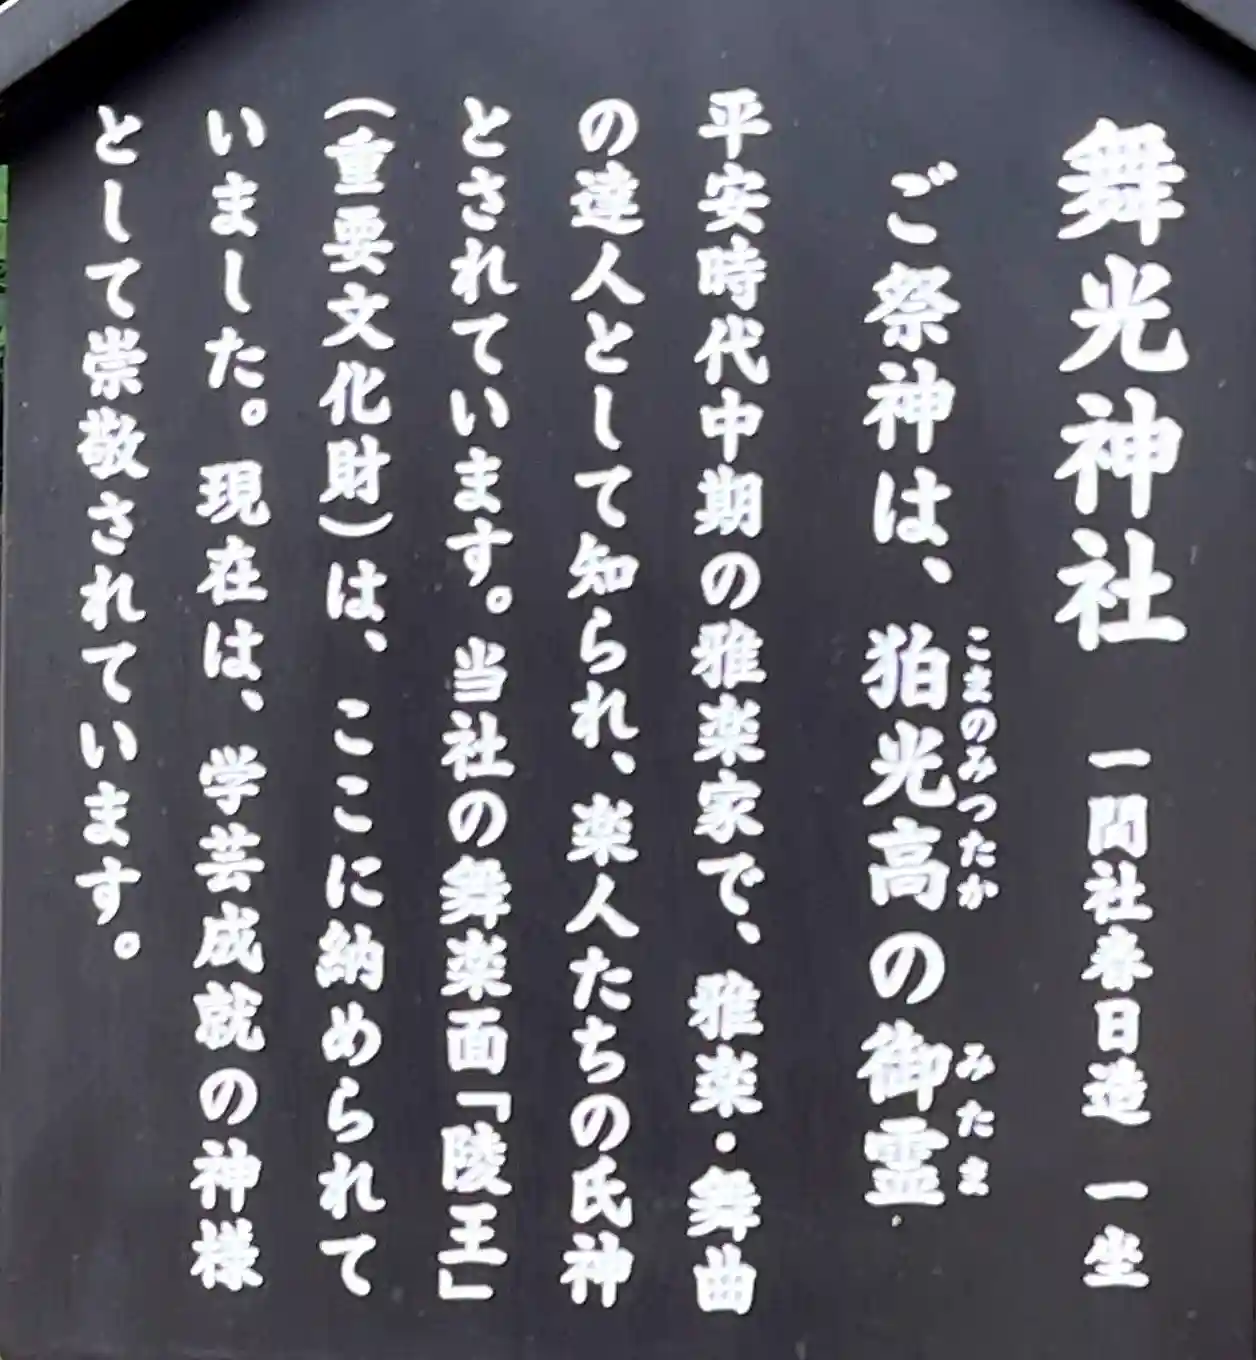 舞光神社 一間社春日造 一坐
ご祭神は、狛光高の御霊
こまのみつたか みたま
平安時代中期の雅楽家で、雅楽・舞曲
の達人として知られ、楽人たちの氏神
とされています。当社の舞楽面「陵王」
(重要文化財)は、ここに納められて
いました。現在は、学芸成就の神様
として崇敬されています。